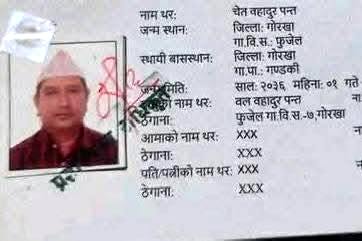 नाम थर: चेत वहादुर पन्त
जन्म स्थान: जिल्ला: गोरखा
गा.वि.स.: फुजेल
स्थायी बासस्थान: जिल्ला: गोरखा
गा.पा.: गण्डकी
जन्म मिति: साल: २०३६ महिना: ०१ गते
को नाम थर: वल वहादुर पन्त ना
ठेगाना: फुजेल गा.वि.स.-७,गोरखा
आमाको नाम थर: XXX ना
ठेगाना: XXX
पति/पत्नीको नाम थर: XXX ना
ठेगाना: XXX